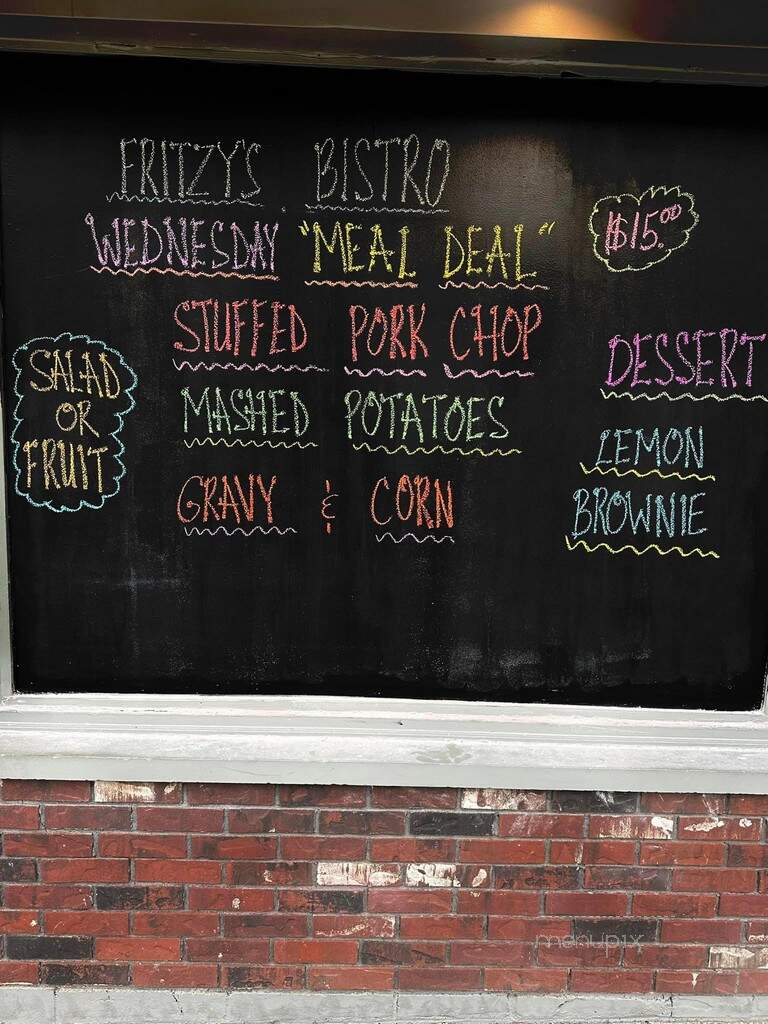 FRITZY'S BISTRO
WEDNESDAY "MEAL DEAL"
$15.00
STUFFED PORK CHOP
MASHED POTATOES
GRAVY & CORN
SALAD
OR
FRUIT
DESSERT
LEMON
BROWNIE
menupix